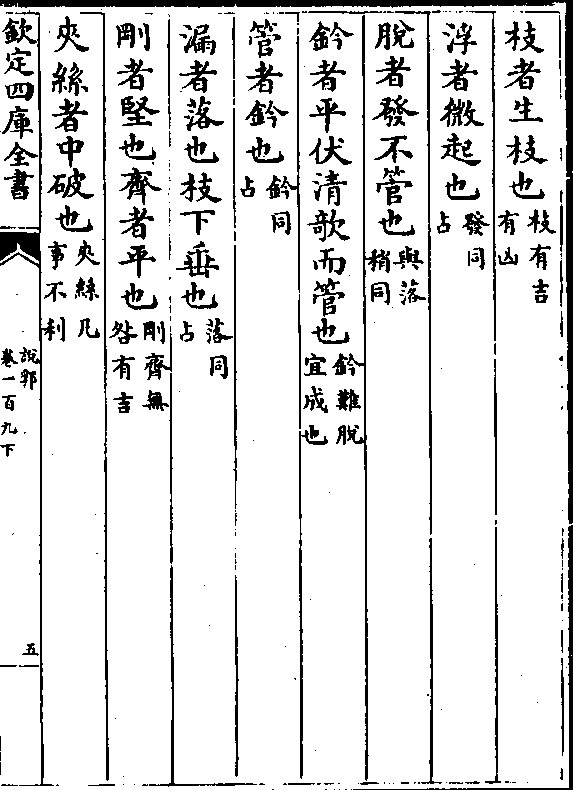 枝者生枝也枝有吉有凶
浮者微起也發同占
脫者發不管也與落稍同
鈐者平伏清歌而管也鈐難脫宜成也
管者鈐也鈐同占
漏者落也枝下垂也落同占
剛者堅也齊者平也剛齊無咎有吉
夾絲者中破也夾絲凡事不利
欽定四庫全書
說郛
卷一百九下
五